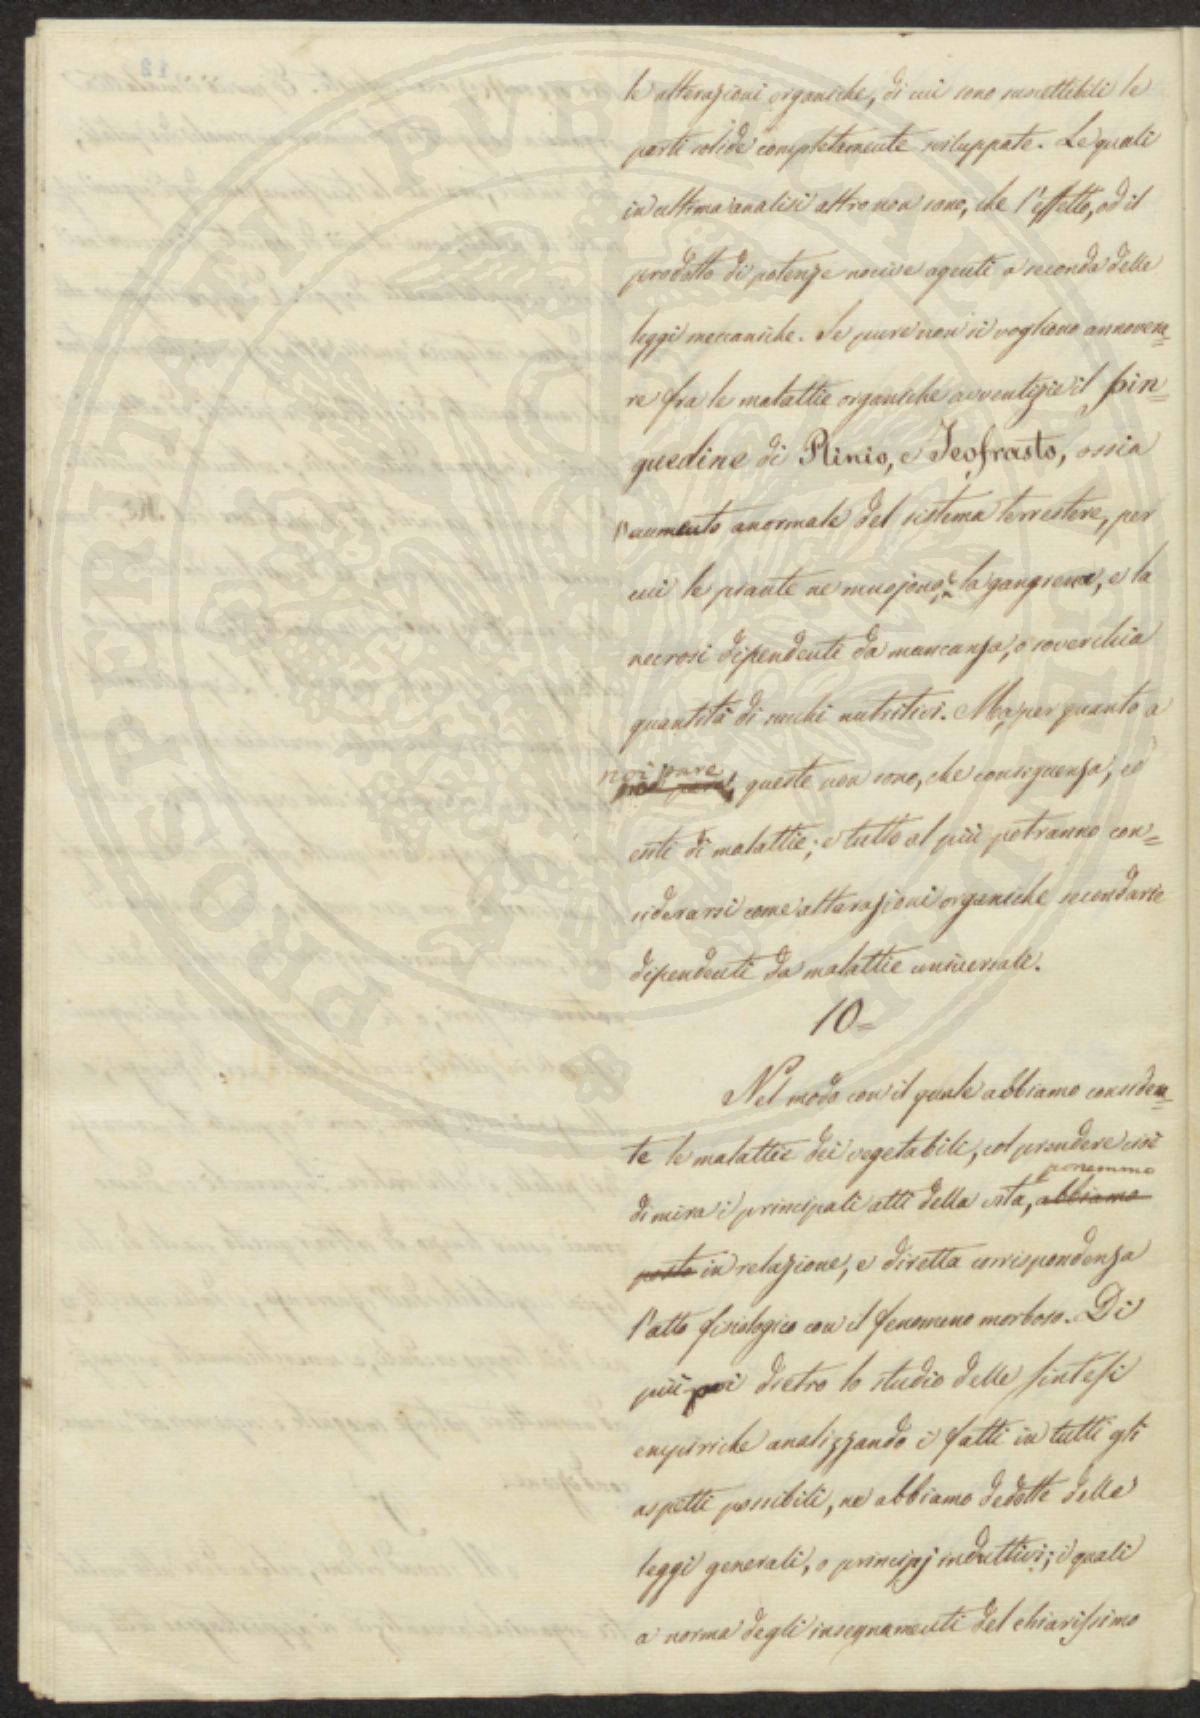 le alterazioni organiche, di cui sono suscettibili le
parti solide completamente sviluppate. Le quali
in ultima analisi altro non sono, che l'effetto, od il
prodotto di potenze nocive agenti a seconda delle
leggi meccaniche. Se pure non si vogliono annovera=
re fra le malattie organiche avventizie il pin=
guedine di Plinio, e Teofrasto, ossia
l'aumento anormale del sistema terrestere, per
cui le piante ne muojono, e la gangrena, e la
necrosi dipendenti da mancanza, o soverchia
quantità di succhi nutritivi. Ma, per quanto a
noi pare
queste non sono, che conseguenza, ed
esiti di malattie; e tutto al più potranno con=
siderarsi come alterazioni organiche secondarie
dipendenti da malattie universali.
10=
Nel modo con il quale abbiamo considera=
te le malattie dei vegetabili, col prendere cioè
ponemmo
di mira i principali atti della vita, abbiamo
posto in relazione, e diretta corrispondenza
l'atto fisiologico con il fenomeno morboso. Di
più poi dietro lo studio delle sintesi
empiriche analizzando i fatti in tutti gli
aspetti possibili, ne abbiamo dedotte delle
leggi generali, o principj induttivi; i quali
a norma degli insegnamenti del chiarissimo
PROSPERITATI PUBLICAE